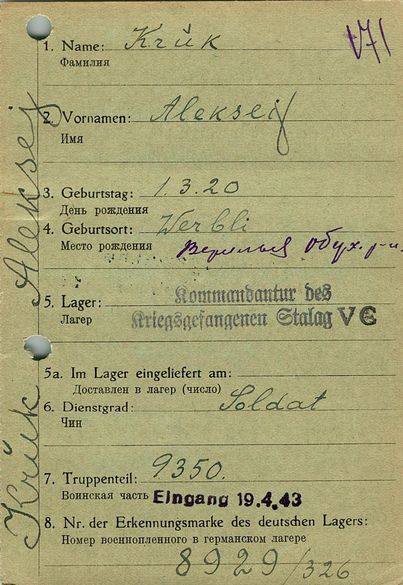 171
1. Name: Krŭk
Фамилия
2. Vornamen: Aleksej
Имя
3. Geburtstag: 1.3.20
День рождения
4. Geburtsort: Werbli
Место рождения обух. р-н.
5. Lager: Kommandantur des
Лагер Kriegsgefangenen Stalag V C
5a. Im Lager eingeliefert am:
Доставлен в лагер (число)
6. Dienstgrad: Soldat
Чин
7. Truppenteil: 9350.
Воинская часть Eingang 19.4.43
8. Nr. der Erkennungsmarke des deutschen Lagers:
Номер военнопленного в германском лагере
8929/326
Krŭk Aleksej